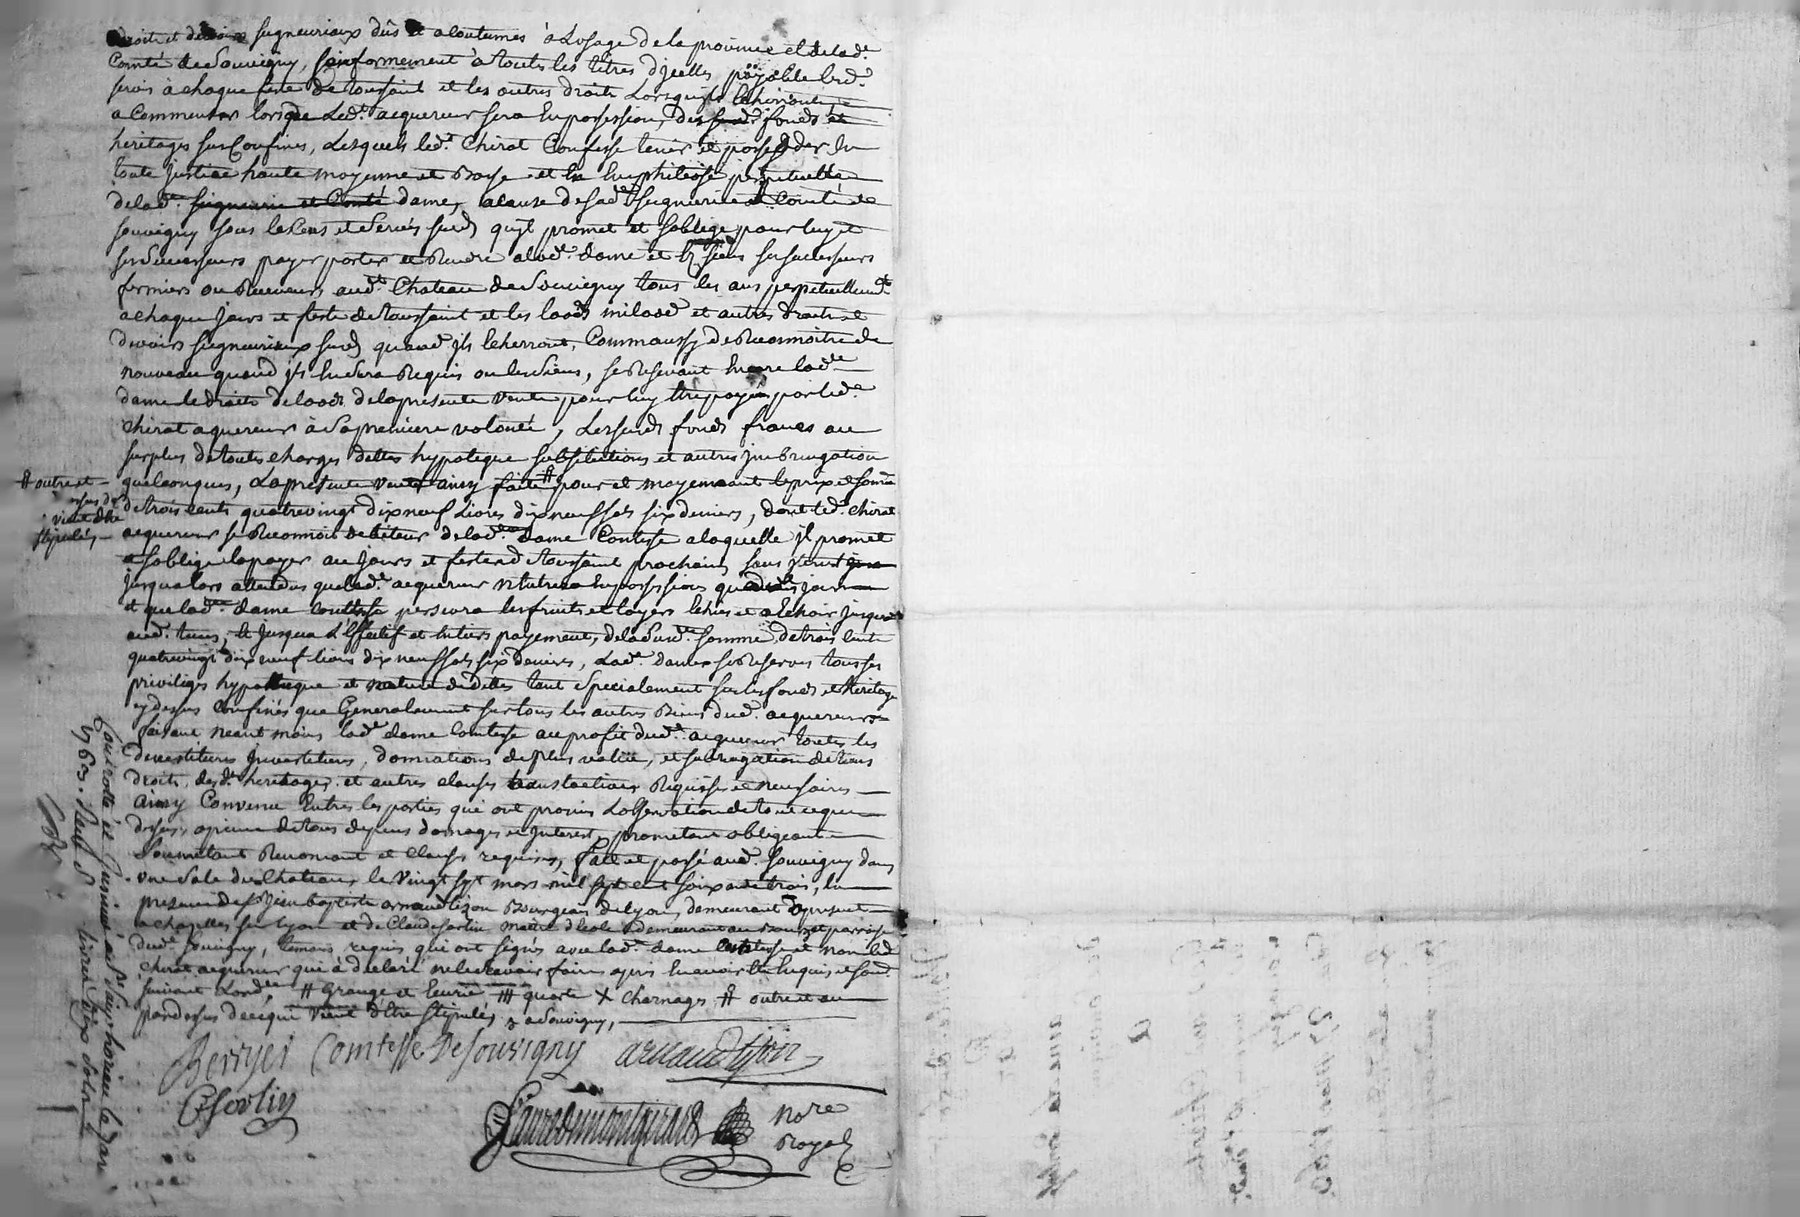 droits et devoirs seigneuriaux dûs et acoutumés à Lusage de la province et de lad.e
Comté de Souvigny, Conformement à touts les titres d'jcelles payable led.
servis à chaque feste de toussaint et les autres droits Lorsqu'ils écherront
a Commencer lorsque Led.t acquereur sera En possession, des fonds et
heritages sus Confinés, Lesquels led.t Chirat Confesse tenir et posseder En
toute justice haute moyenne et Basse et En Emphiteose perpetuelle
de lad.e seigneurie et Comté dame, acause de sad.e seigneurie et Comté de
Souvigny sous le Cens et servis susd. qu'jl promet et soblige pour luy et
ses successeurs payer porter et Rendre a lad.e dame et Es siens ses successeurs
fermiers ou Receveurs aud.t Chateau de Souvigny tous les ans perpetuellem.t
a chaque jours et feste de toussaint et les laods milaods et autres droits et
devoirs seigneuriaux susd. quand jls écherront, Comm'aussy de Reconnoitre de
nouveau quand jl En sera Requis ou les siens, se Reservant Encore lad.e
dame le droits de laods de la presente vente pour luy Etre payés par led.t
Chirat aquereur à sa premiere volonté, Les susd. fonds francs au
surplus de toutes charges dettes hypoteque substitutions et autres jmbringation
quelconques, La presente vente ainsy faite # pour et moyennant le prix et somme
de trois cents quatrevingt dixneuf Livres dixneuf sols six deniers, dont led.t Chirat
acquereur se Reconnois debiteur de lad.e dame Comtesse a laquelle jl promet
et soblige la payer au jours et feste de toussaint prochain sans jnterest
jusqualors attendus que led.t acquereur n'Entrera En possession qu'aud.t jour
et que lad.e dame Comtesse persevra les fruits et loyers échus et a échoir jusqu'
aud. tems, Et jusqua L'Effectif et Entiers payement, de la susd.e somme de trois cent
quatrevingt dix neuf livres dix neuf sols six deniers, Lad.e dame se Reserves tous ses
priviliges hypotheque et nature de dettes tant specialement sur les fonds et heritages
cy dessus Confinés que Generalement sur tous les autres Biens dud. acquereur
faisant neant moins lad.e dame Comtesse au profit dud.t acquereur toutes les
devestitures jnvestitures, donnations de plus value, et subrogation de tous
droits, desd. heritages, et autres clauses translatives Requises et necessaires
Ainsy Convenu Entres les parties qui ont promis L'observation de tout ce que
dessus, a peine de tous depens domages et jnterest, promettant obligeant
soumettant Renonçant et Clauses requises, fait et passé aud. Souvigny dans
une sale du Chateau, le vingt sept mars mil sept cent soixante trois, En
presence de s.r jean baptiste arnaud tizon Bourgeois de Lyon, demeurant
a chazelles sur Lyon et de Claude Sorlin maitre d'Ecole demeurant au Bourg et parroisse
dud. Souvigny, temoins requis qui ont signés avec lad.e dame Comtesse et non led.
Chirat acquereur qui à declaré ne le scavoir faire apres En avoir Eté Enquis et somé
suivant Lord.ce # Grange et Ecurie ## quarte X charnages # outre et au
pardessus de ce qui vient d'être stipulés, a Souvigny,
# outre et
vient d'etre
stipulés
Berryer Comtesse De souvigny arnaud tizon
C Sorlin
faure de montgirard no.re
Royal
Controllé et jnsinué a S.t Simphorien le 9 avr
1763. Reçu livres dix sols